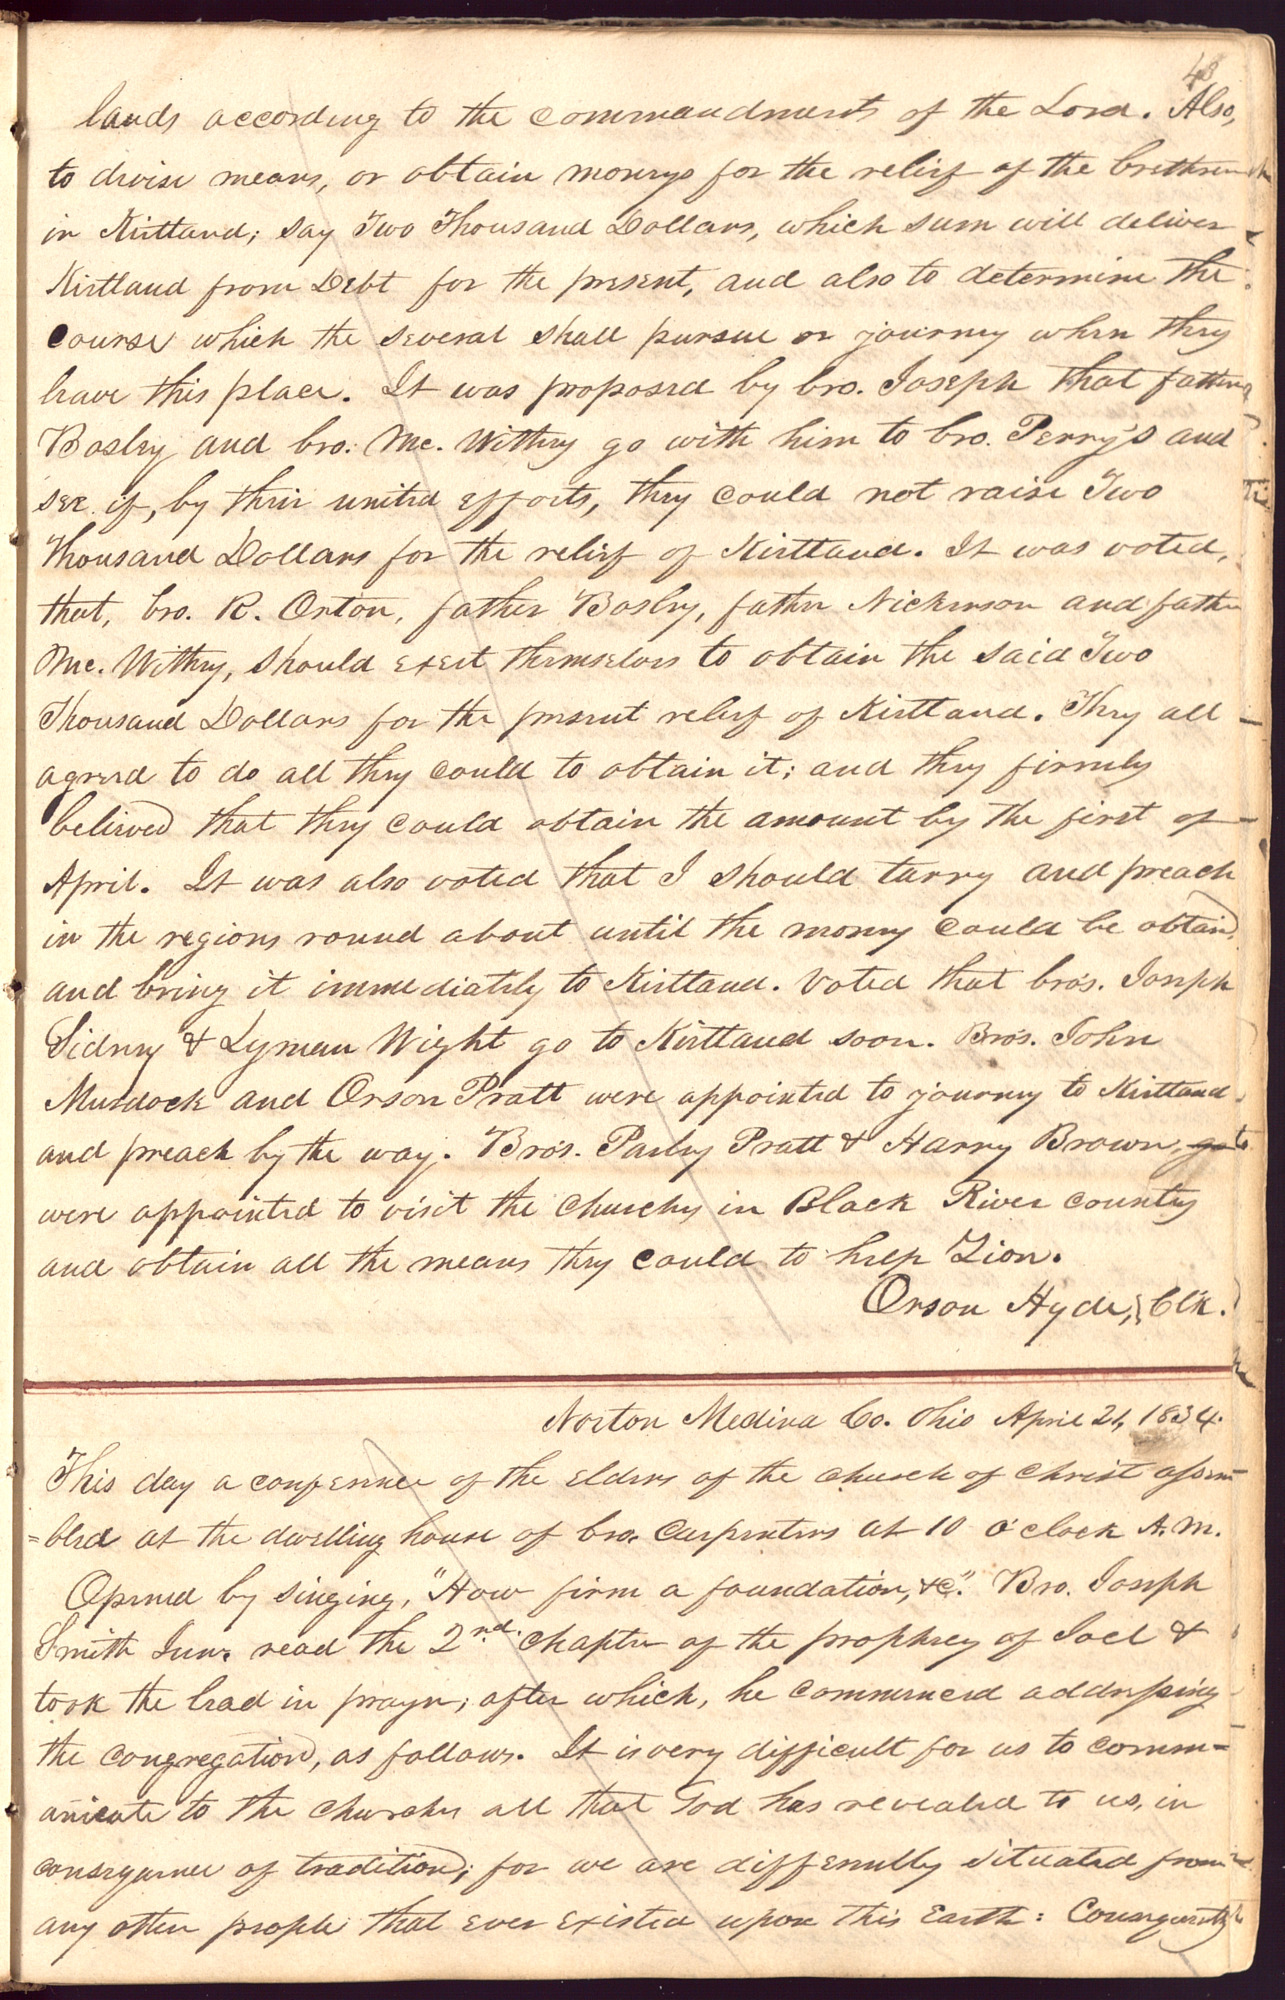 43
lands according to the commandments of the Lord. Also,
to devise means, or obtain moneys for the relief of the brethren
in Kirtland; say Two Thousand Dollars, which sum will deliver
Kirtland from Debt for the present, and also to determine the
course which the several shall pursue or journey when they
leave this place. It was proposed by bro. Joseph that father
Bosley and bro. Mc. Withey go with him to bro. Perry's and
see if, by their united efforts, they could not raise Two
Thousand Dollars for the relief of Kirtland. It was voted,
that, bro. R. Orton, father Bosley, father Nickerson and father
Mc. Withey, should exert themselves to obtain the said Two
Thousand Dollars for the present relief of Kirtland. They all
agreed to do all they could to obtain it; and they firmly
believed that they could obtain the amount by the first of
April. It was also voted that I should tarry and preach
in the regions round about until the money could be obtaind,
and bring it immediately to Kirtland. Voted that bro's. Joseph
Sidney & Lyman Wight go to Kirtland soon. Bro's. John
Murdock and Orson Pratt were appointed to journey to Kirtland
and preach by the way. Bro's. Parley Pratt & Harry Brown, go to
were appointed to visit the churches in Black River country
and obtain all the means they could to help Zion.
Orson Hyde, Clk.
Norton Medina Co. Ohio April 21, 1834.
This day a conference of the Elders of the church of Christ assem-
=bled at the dwelling house of bro. Carpenters at 10 o'clock A.M.
Opened by singing, "How firm a foundation, &c". Bro. Joseph
Smith Jun. read the 2nd. chapter of the prophecy of Joel &
took the lead in prayer; after which, he commenced addressing
the congregation, as follows. It is very difficult for us to comm=
unicate to the churches all that God has revealed to us, in
consequence of tradition; for we are differently situated from
any other people that ever existed upon this Earth: Consequently